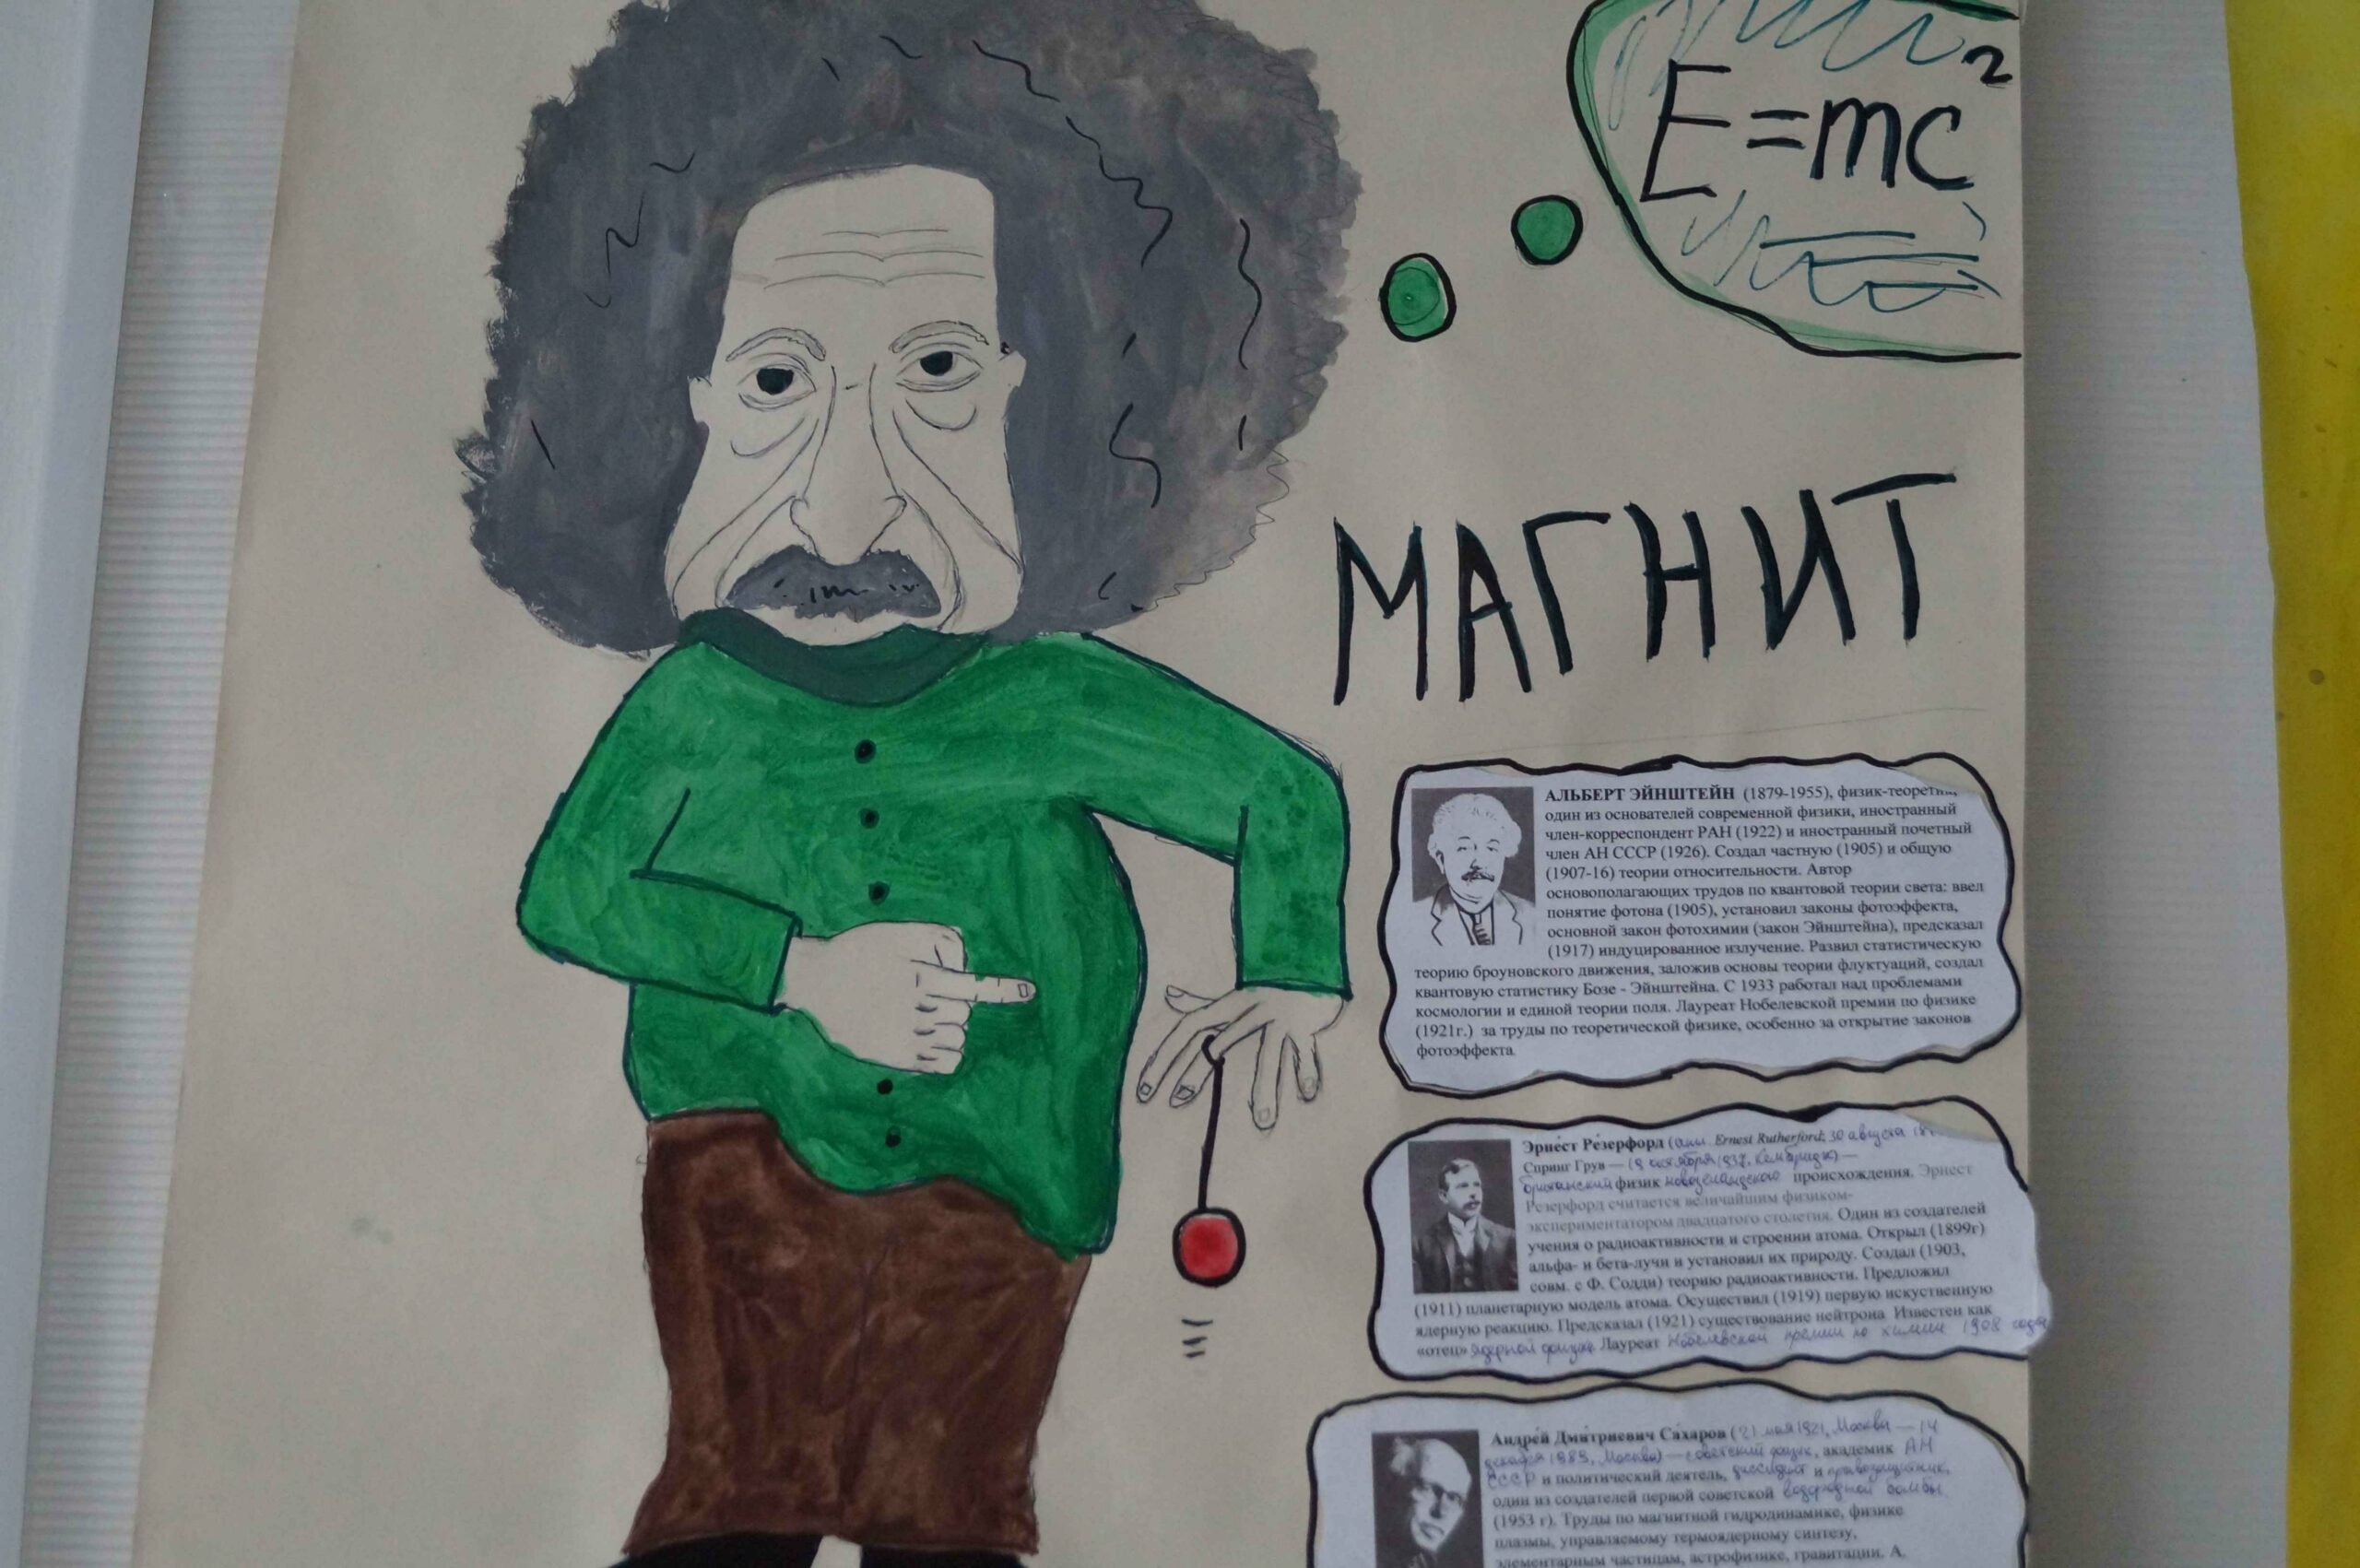 E=mc²
МАГНИТ
АЛЬБЕРТ ЭЙНШТЕЙН (1879-1955),
один из основателей современной физики, иностранный
член-корреспондент РАН (1922) и иностранный почетный
член АН СССР (1926). Создал частную (1905) и общую
(1907-16) теории относительности. Автор
основополагающих трудов по квантовой теории света: ввел
понятие фотона (1905), установил законы фотоэффекта,
основной закон фотохимии (закон Эйнштейна), предсказал
(1917) индуцированное излучение. Развил статистическую
теорию броуновского движения, заложив основы теории флуктуаций, создал
квантовую статистику Бозе - Эйнштейна. С 1933 работал над проблемами
космологии и единой теории поля. Лауреат Нобелевской премии по физике
(1921г.) за труды по теоретической физике, особенно за открытие законов
фотоэффекта.
Эрне́ст Ре́зерфорд (англ. Ernest Rutherford; 30 августа
Спринг Грув — 19 октября 1937, Кембридж) —
британский физик новозеландского происхождения. Эрнест
Резерфорд считается величайшим физиком-
экспериментатором двадцатого столетия. Один из создателей
учения о радиоактивности и строении атома. Открыл (1899г)
альфа- и бета-лучи и установил их природу. Создал (1903,
совм. с Ф. Содди) теорию радиоактивности. Предложил
(1911) планетарную модель атома. Осуществил (1919) первую искуственную
ядерную реакцию. Предсказал (1921) существование нейтрона Известен как
«отец» ядерной физики Лауреат Нобелевской премии по химии 1908 года
Андре́й Дми́триевич Са́харов (21 мая 1921, Москва — 14
декабря 1989, Москва) — советский физик, академик АН
СССР и политический деятель, диссидент и правозащитник,
один из создателей первой советской водородной бомбы
(1953 г). Труды по магнитной гидродинамике, физике
плазмы, управляемому термоядерному синтезу,
элементарным частицам, астрофизике, гравитации. А.